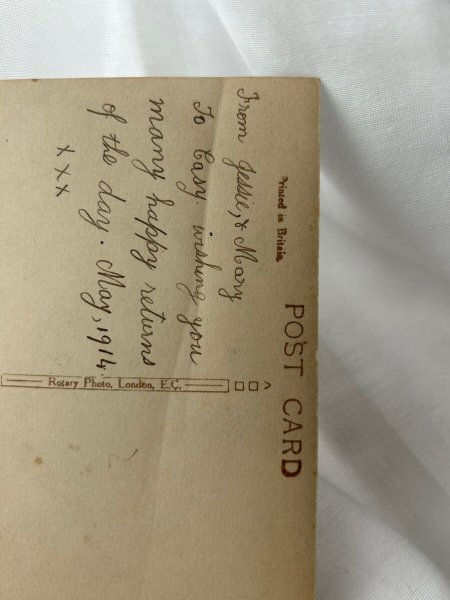 Printed in Britain.
POST CARD
From Jessie, & Mary
To Casy. wishing you
many happy returns
of the day. May, 1914.
x x x
Rotary Photo, London, E.C.